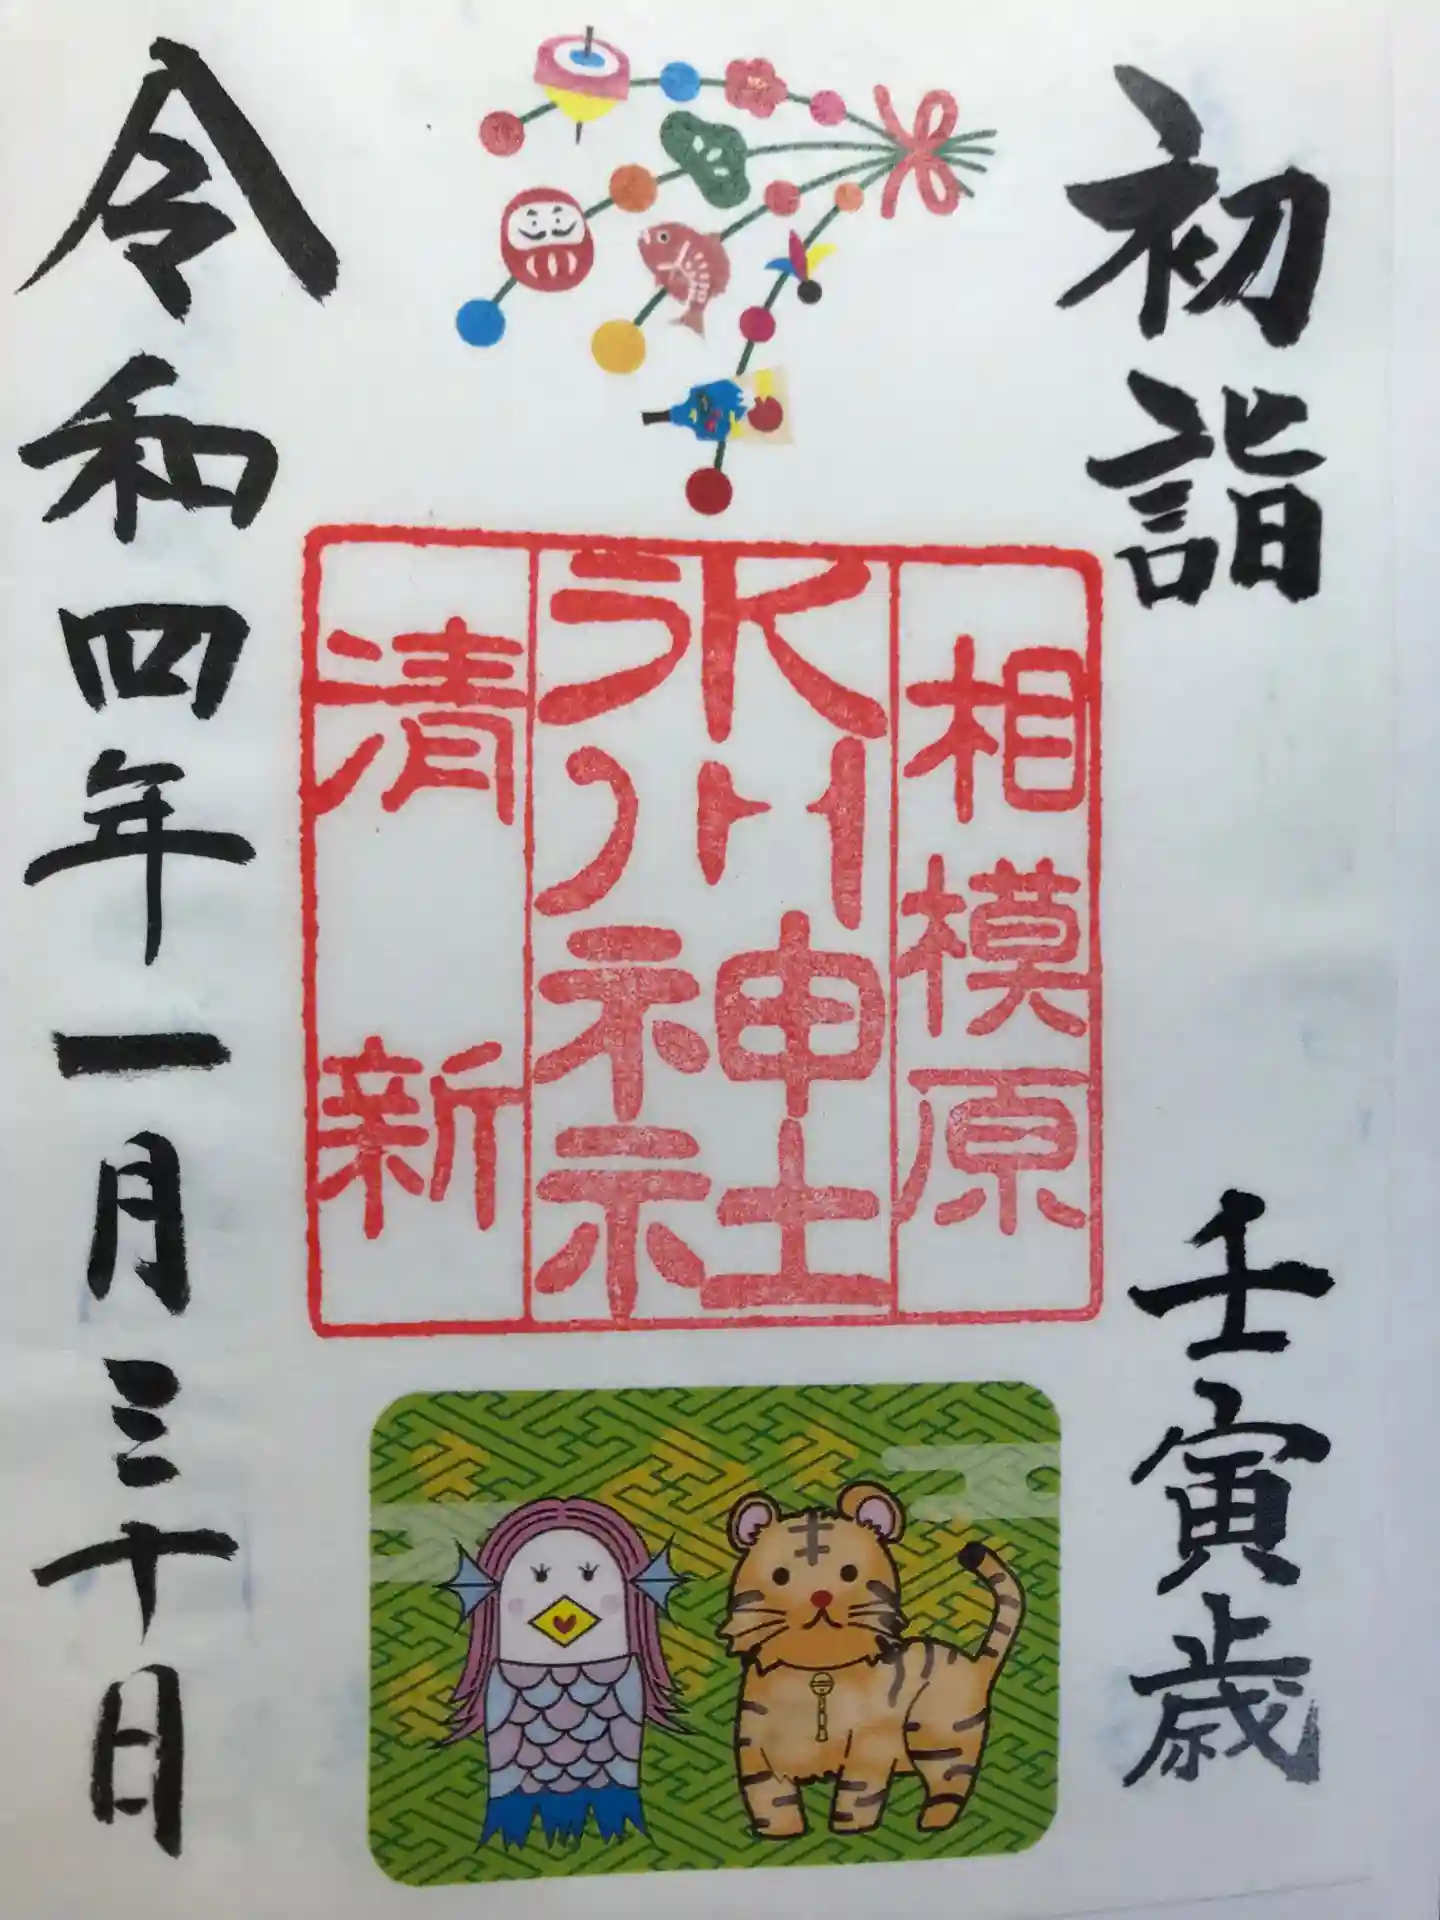 初詣
壬寅歳
相模原
氷川神社
清新
令和四年一月三十日